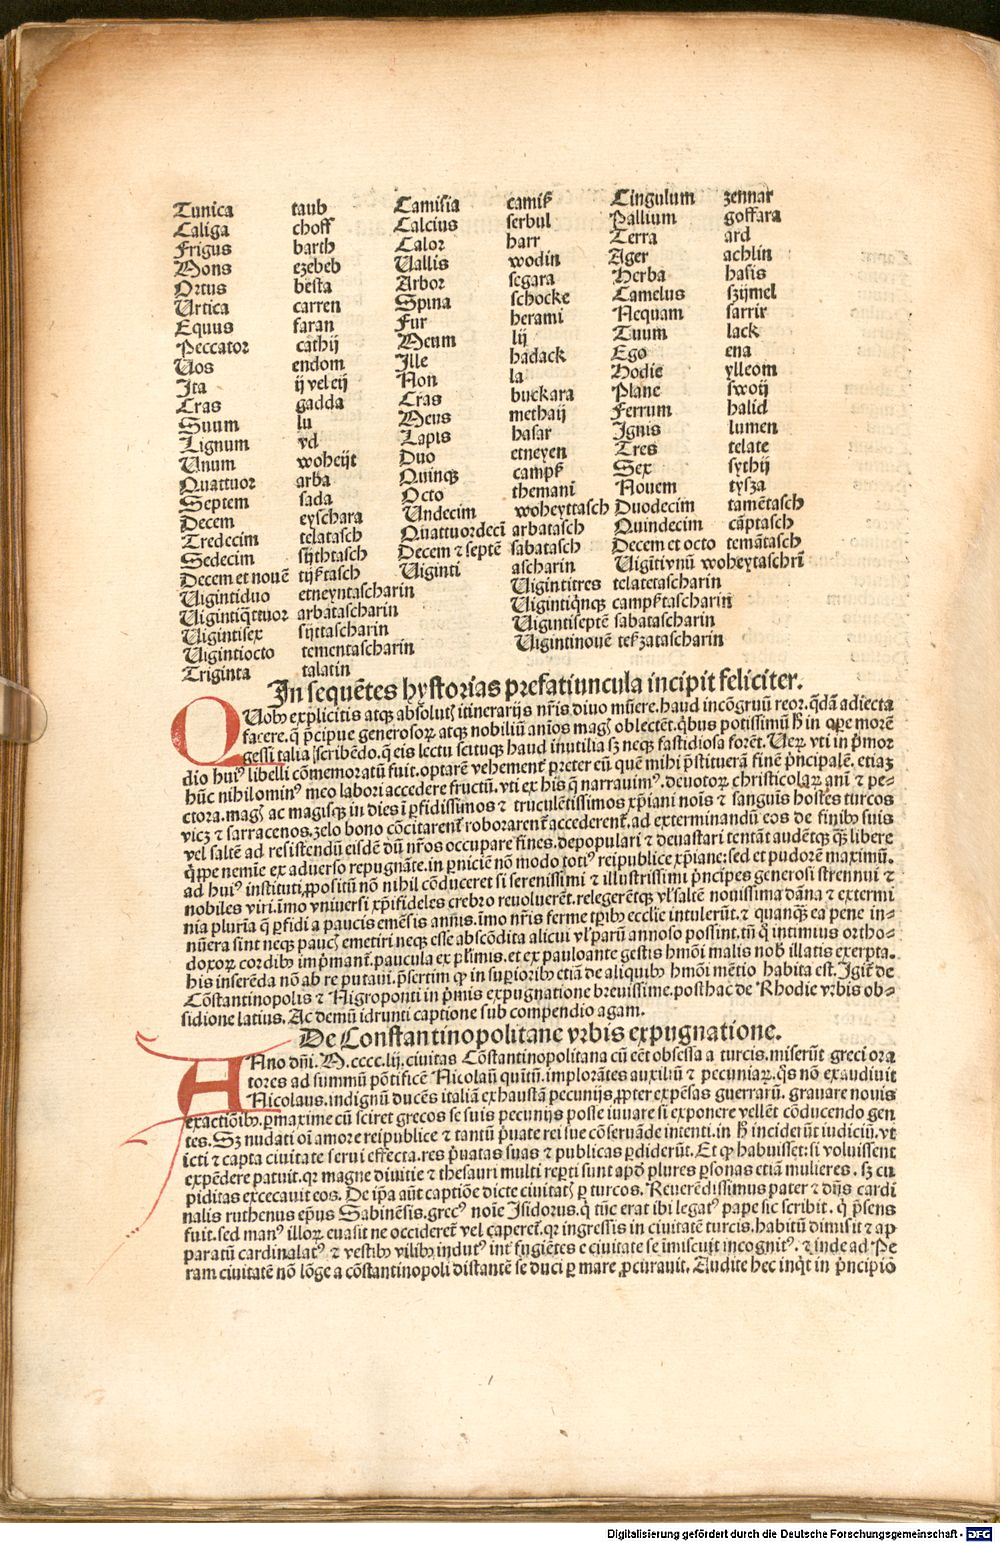 Tunica taub Camisia camiß Cingulum zennar
Caliga choff Calcius serbul Pallium goffara
Frigus barth Calor harr Terra ard
Mons ezebeb Uallis wodin Ager achlin
Ortus besta Arbor segara Herba hasis
Urtica carren Spina schocke Camelus szijmel
Equus faran Fur herami Nequam sarrir
Peccator cāthij Meum lij Tuum lack
Uos endom Ille hadack Ego ena
Ita ij vel eij Non la Hodie ylleom
Cras gadda Cras buckara Plane swoij
Suum lu Meus methaij Ferrum halid
Lignum vd Lapis hasar Ignis lumen
Unum woheijt Duo etneyen Tres telate
Quattuor arba Quinqꝫ campß Sex sythij
Septem sada Octo themanī Nouem tysza
Decem eyschara Undecim woheyttasch Duodecim tamētasch
Tredecim telatasch Quattuordecī arbatasch Quindecim cāptasch
Sedecim sijthtasch Decem ⁊ septē sabatasch Decem et octo temātasch
Decem et nouē tijßtasch Uiginti ascharin Uigītivnū woheytaschrī
Uigintiduo etneyntascharin Uigintitres telatetascharin
Uigintiq̄ttuor arbatascharin Uigintiq̄nqꝫ campßtascharin
Uigintisex sijttascharin Uigintiseptē sabatascharin
Uigintiocto tementascharin Uigintinouē teßzatascharin
Triginta talatin
In sequētes hystorias prefatiuncula incipit feliciter.
QUobꝰ explicitis atqꝫ absolutꝭ itinerarijs nr̄is diuo mūere. haud incōgruū reor. q̄dā adiecta
facere. q̄ p̄cipue generosoꝝ atqꝫ nobiliū anīos magꝭ oblectēt. q̄bus potissimū ħ in oꝑe morē
gessi talia ſcribēdo. q̄ eis lectu scituqꝫ haud inutilia sꝫ neqꝫ fastidiosa forēt. Ueꝝ vti in p̄mor
dio huiꝰ libelli cōmemoratū fuit. optarē vehementꝭ preter eū quē mihi p̄stituerā finē p̄ncipalē. etiaꝫ
hūc nihilominꝰ meo labori accedere fructū. vti ex his q̄ narrauimꝰ. deuotoꝝ christicolaꝝ anīi ⁊ pe-
ctora. magꝭ ac magisqꝫ in dies ī ꝑfidissimos ⁊ truculētissimos xp̄iani noīs ⁊ sanguīs hostes turcos
vicꝫ ⁊ sarracenos. zelo bono cōcitarentꝭ roborarentꝭ accederentꝭ. ad exterminandū eos de finibꝰ suis
vel saltē ad resistendū eisdē dū nr̄os occupare fines. depopulari ⁊ deuastari tentāt audētqꝫ q̄ꝫ libere
q̄ꝓpe nemīe ex aduerso repugnāte. in ꝑniciē nō modo totiꝰ reipublice xp̄iane: sed et pudorē maximū.
ad huiꝰ instituti ꝓpositū nō nihil cōduceret si serenissimi ⁊ illustrissimi p̄ncipes generosi strennui ⁊
nobiles viri. imo vniuersi xp̄ifideles crebro reuoluerēt. relegerētqꝫ vl̓ saltē nouissima dāna ⁊ extermi
nia plurīa q̄ ꝑfidi a paucis emēsis annis. imo nr̄is ferme tꝑibꝰ ecclīe intulerūt. ⁊ quanqꝫ ea pene in-
nūera sint neqꝫ paucꝭ emetiri neqꝫ esse abscōdita alicui vl̓ parū annoso possint. tn̄ q̄ intimius ortho-
doxoꝝ cordibꝰ imp̄mantꝭ. paucula ex pl̓imis. et ex pauloante gestis hmōi malis nobꝭ illatis exerpta.
his inserēda nō ab re putaui. p̄sertim qꝫ in supioribꝰ etiā de aliquibꝰ hmōi mētio habita est. Igitꝭ de
Cōstantinopolis ⁊ Nigroponti in p̄mis expugnatione breuissime. posthac de Rhodie vrbis ob-
sidione latius. Ac demū idrunti captione sub compendio agam.
De Constantinopolitane vrbis expugnatione.
ANno dn̄i. M. cccc. lij. ciuitas Cōstantinopolitana cū eēt obsessa a turcis. miserūt greci ora
tores ad summū pōtificē Nicolaū quītū. implorātes auxiliū ⁊ pecuniaꝝ. q̄s nō exaudiuit
Nicolaus. indignū ducēs italiā exhaustā pecunijs. ꝓpter expēsas guerrarū. grauare nouis
exactiōibꝰ. ꝑmaxime cū sciret grecos se suis pecunijs posse iuuare si exponere vellēt cōducendo gen
tes. Sꝫ nudati oī amore reipublice ⁊ tantū p̄uate rei sue cōseruāde intenti. in ħ inciderūt iudiciū. vt
icti ⁊ capta ciuitate serui effecta. res p̄uatas suas ⁊ publicas ꝑdiderūt. Et qꝫ habuisset: si voluissent
expēdere patuit. qꝛ magne diuitie ⁊ thesauri multi reperti sunt apd̓ plures ꝑsonas etiā mulieres. sꝫ cu
piditas excecauit eos. De ip̄a aūt captiōe dicte ciuitatꝭ ꝑ turcos. Reuerēdissimus pater ⁊ dn̄s cardi
nalis ruthenus ep̄us Sabinēsis. grecꝰ noīe Isidorus. q̄ tūc erat ibi legatꝰ pape sic scribit. q̄ p̄sens
fuit. sed manꝰ illoꝝ euasit ne occideretꝭ vel caperetꝭ. qꝛ ingressis in ciuitatē turcis. habitū dimisit ⁊ ap
paratū cardinalatꝰ ⁊ vestibꝰ vilibꝰ indutꝰ intꝭ fugiētes e ciuitate se īmiscuit incognitꝰ. ⁊ inde ad Pe
ram ciuitatē nō lōge a cōstantinopoli distantē se duci ꝑ mare ꝓcurauit. Audite hec inq̄t in p̄ncipio
Digitalisierung gefördert durch die Deutsche Forschungsgemeinschaft - DFG